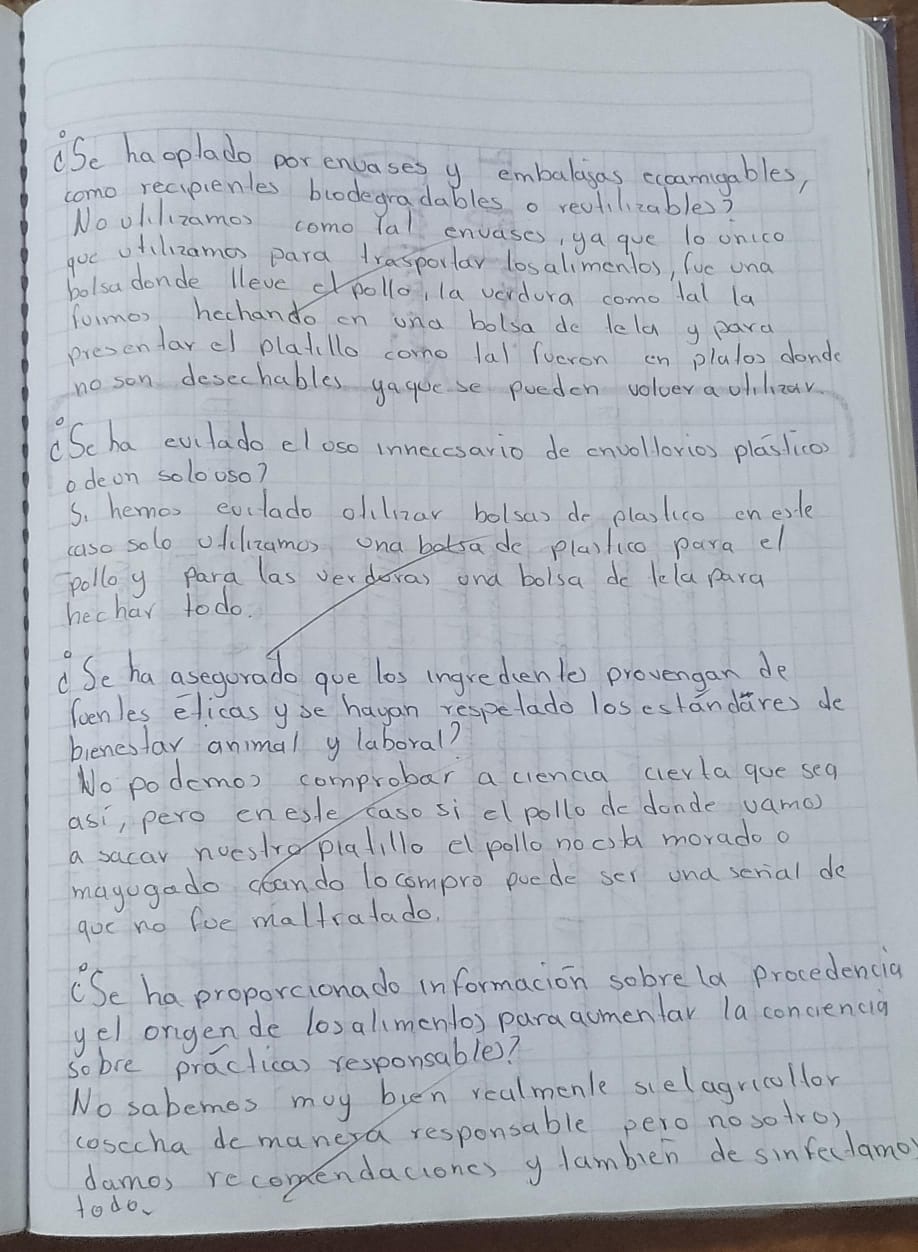 ¿Se ha optado por envases y embalajas ecoamigables,
como recipientes biodegradables o reutilizables?
No utilizamos como tal envases, ya que lo único
que utilizamos para trasportar los alimentos, fue una
bolsa donde lleve el pollo, la verdura como tal la
fuimos hechando en una bolsa de tela y para
presentar el platillo como tal fueron en platos donde
no son desechables ya que se pueden volver a utilizar.
¿Se ha evitado el uso inneccsario de envoltorios plásticos
o de un solo uso?
Si hemos evitado utilizar bolsas de plastico en este
caso solo utilizamos una bolsa de plastico para el
pollo y para las verduras una bolsa de tela para
hechar todo.
¿Se ha asegurado que los ingredientes provengan de
fuentes éticas y se hayan respetado los estándares de
bienestar animal y laboral?
No podemos comprobar a ciencia cierta que sea
así, pero en este caso si el pollo de donde vamos
a sacar nuestro platillo el pollo no esta morado o
mayugado cuando lo compro puede ser una señal de
que no fue maltratado.
¿Se ha proporcionado información sobre la procedencia
y el origen de los alimentos para aumentar la conciencia
sobre prácticas responsables?
No sabemos muy bien realmente si el agricultor
cosecha de manera responsable pero nosotros
damos recomendaciones y tambien desinfectamos
todo.